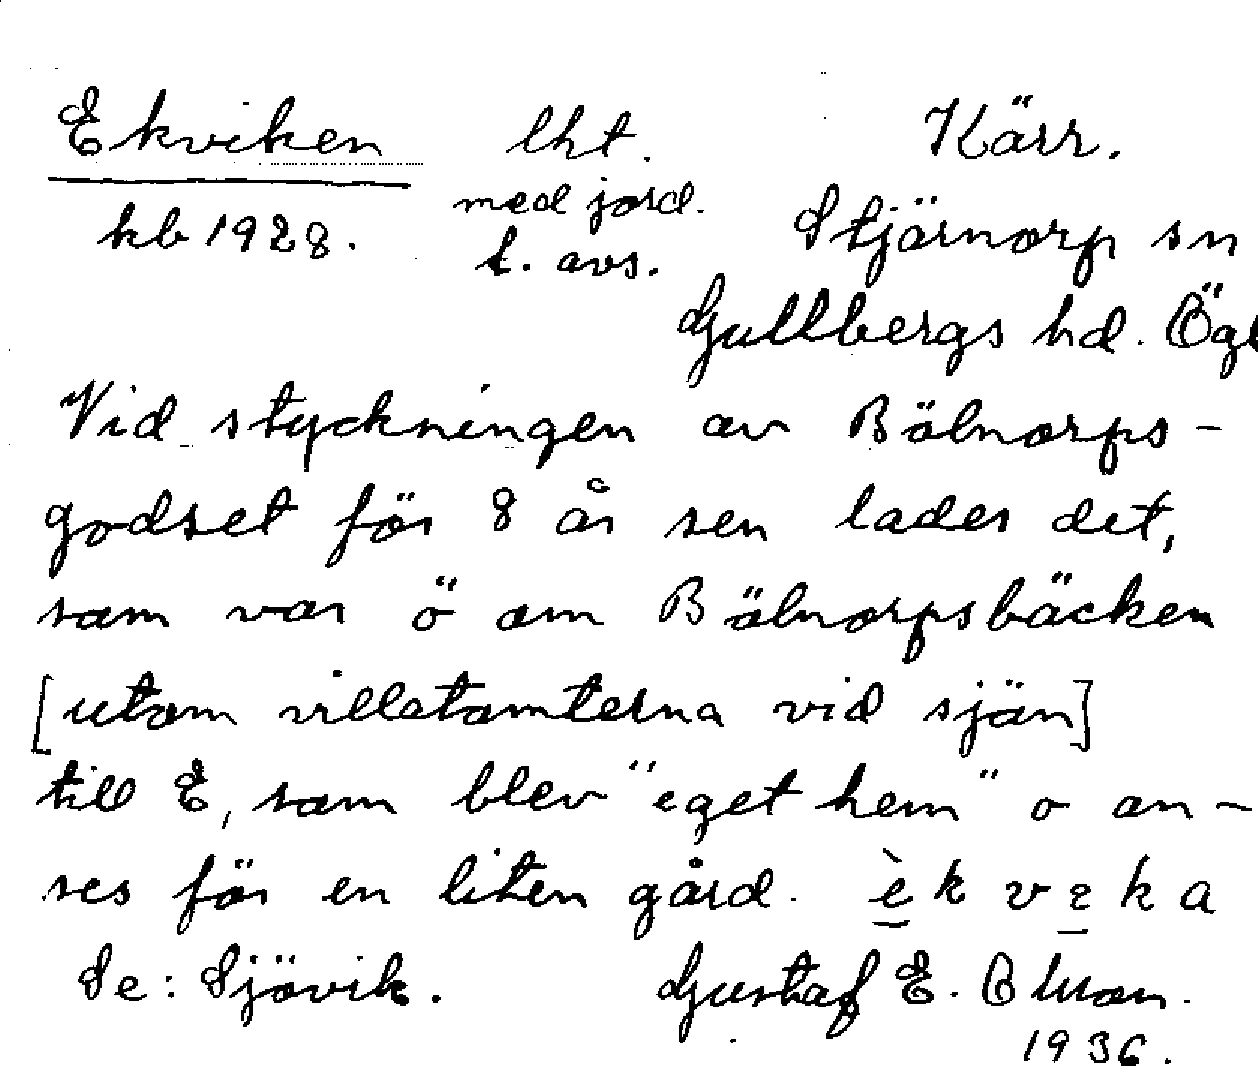 Ekviken lht. Kärr.
med jord.
kb 1928. l. avs. Stjärnorp sn
Gullbergs hd. Ögl
Vid styckningen av Bölnorps-
godset för 8 år sen lades det,
som var ö om Bölnorpsbäcken
[utom villatomterna vid sjön]
till E, som blev "eget hem" o an-
ses för en liten gård. è k v e k a
Se: Sjövik. Gustaf E. Olman.
1936.